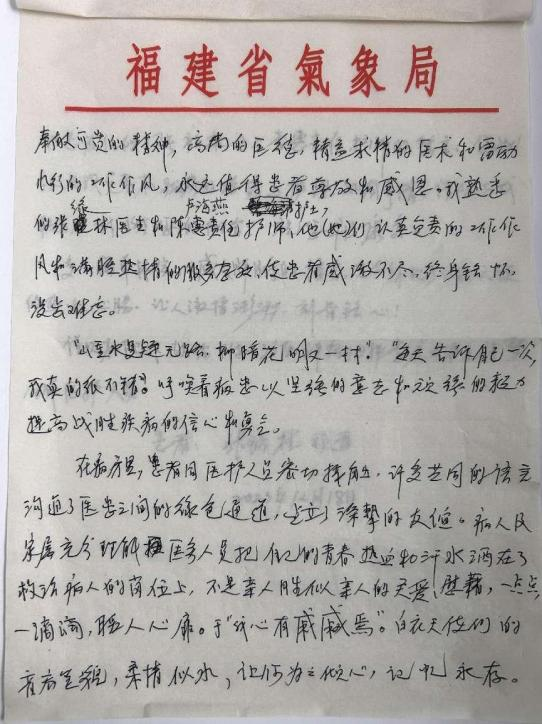 福建省氣象局
可贵的精神，高尚的医德，精益求精的医术和雷动
的工作作风，永远值得患者尊敬和感恩。我熟悉
卢海燕
的张林医生和陈惠责任护师，他(她)们认真负责的工作作
风和满腔热情的服务态度，使患者感激不尽，终身铭怀，
没齿难忘。
“山重水复疑无路，柳暗花明又一村”。“每天告诉自己一次，
我真的很不错”。呼唤着病患以坚强的意志和顽强的毅力
提高战胜疾病的信心和勇气。
在病房里，患者同医护人员密切接触，许多共同的语言
沟通了医患之间的绿色通道，建立了深挚的友谊。病人及
家属充分理解医务人员把自己的青春热血和汗水洒在了
救治病人的岗位上，不是亲人胜似亲人的关爱、慰藉，一点点，
一滴滴，暖人心扉。于“我心有戚戚焉”。白衣天使们的
音容笑貌，柔情似水，让何为之倾心，记忆永存。